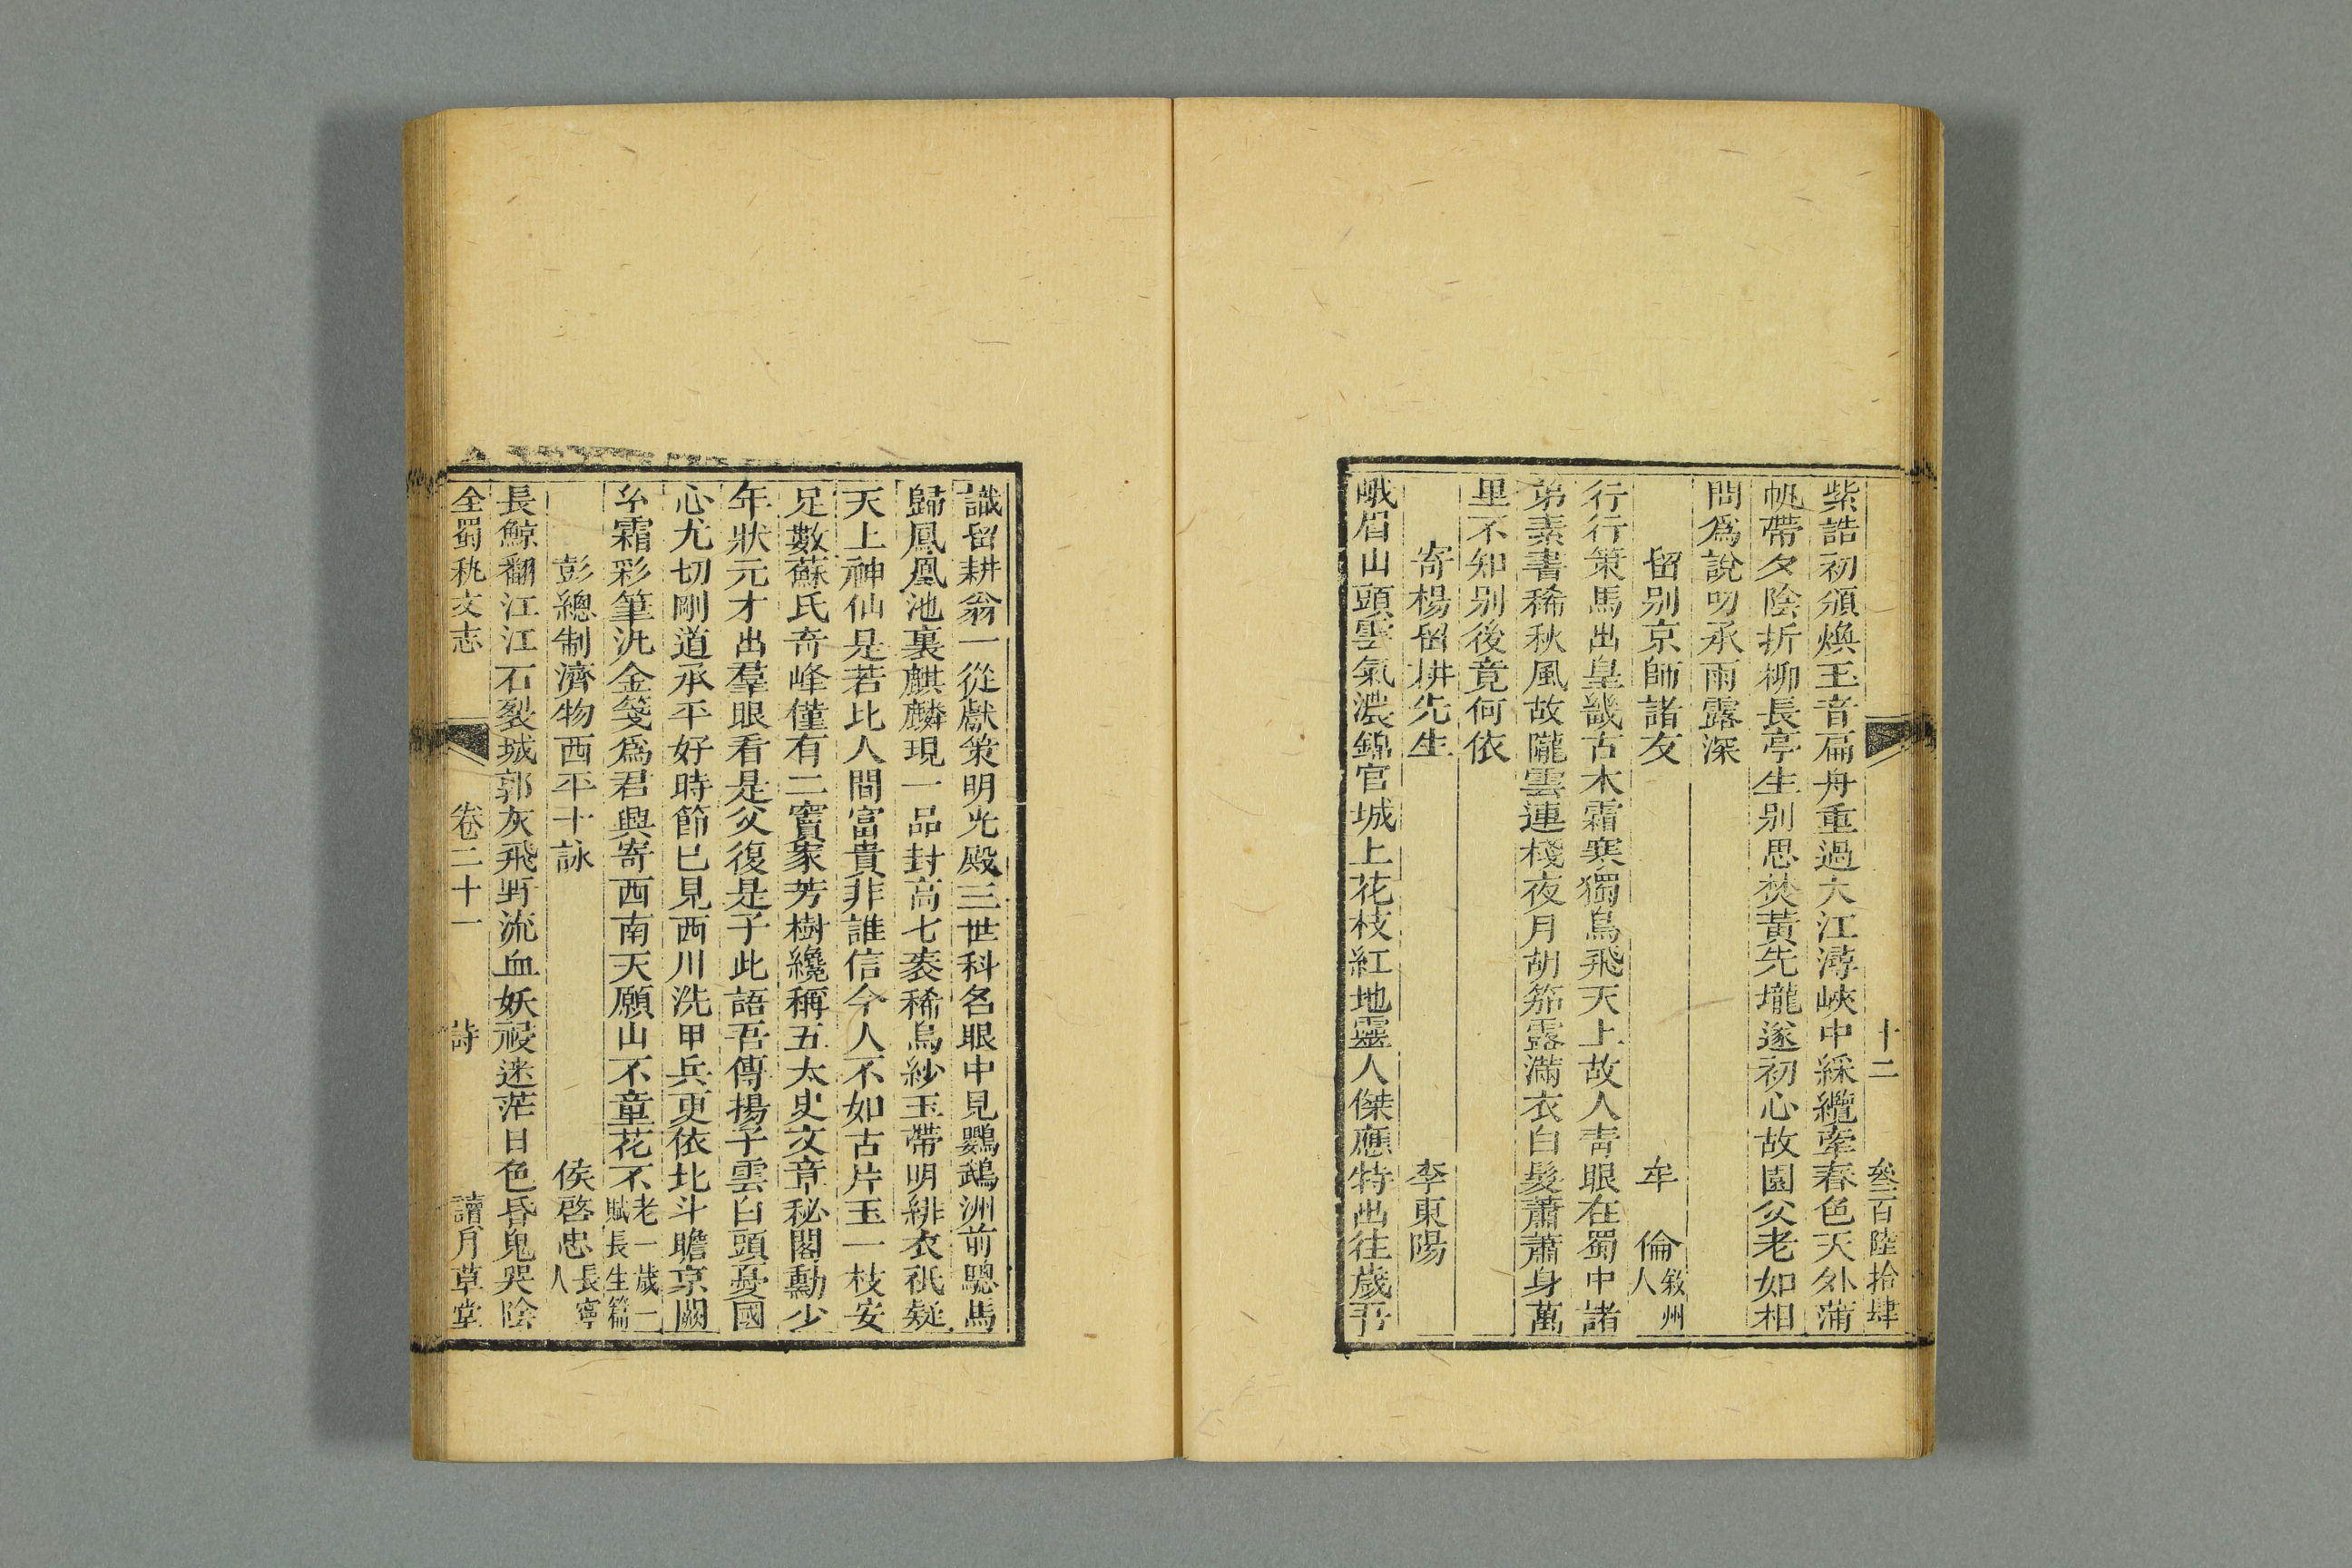 十二 叄百陸拾肆
紫誥初頒煥玉音扁舟重過大江潯峽中綵纜牽春色天外蒲
帆帶夕陰折柳長亭生别思焚黃先壠遂初心故園父老如相
問爲說叨承雨露深
留别京師諸友 牟倫敘州人
行行策馬出皇畿古木霜寒獨鳥飛天上故人靑眼在蜀中諸
弟素書稀秋風故隴雲連棧夜月胡笳露滿衣白髮蕭蕭身萬
里不知别後竟何依
寄楊留耕先生 李東陽
峨眉山頭雲氣濃錦官城上花枝紅地靈人傑應特出往歲吾
識留耕翁一從獻策明光殿三世科名眼中見鸚鵡洲前驄馬
歸鳳凰池裏麒麟現一品封高七袠稀烏紗玉帶明緋衣祇疑
天上神仙是若比人間富貴非誰信今人不如古片玉一枝安
足數蘇氏奇峰僅有二竇家芳樹纔稱五太史文章秘閣勳少
年狀元才出羣眼看是父復是子此語吾傳揚子雲白頭憂國
心尤切剛道承平好時節已見西川洗甲兵更依北斗瞻京闕
台霜彩筆沇金箋爲君興寄西南天願山不童花不老一歲一賦長生篇
彭總制濟物西平十詠 侯啓忠長寧人
長鯨翻江江石裂城郭灰飛野流血妖祲迷茫日色昏鬼哭陰
全蜀秇文志 卷二十一 詩 讀月草堂